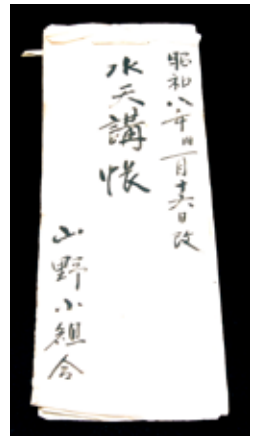 昭和八年四月十六日改
水天講帳
山野小組合